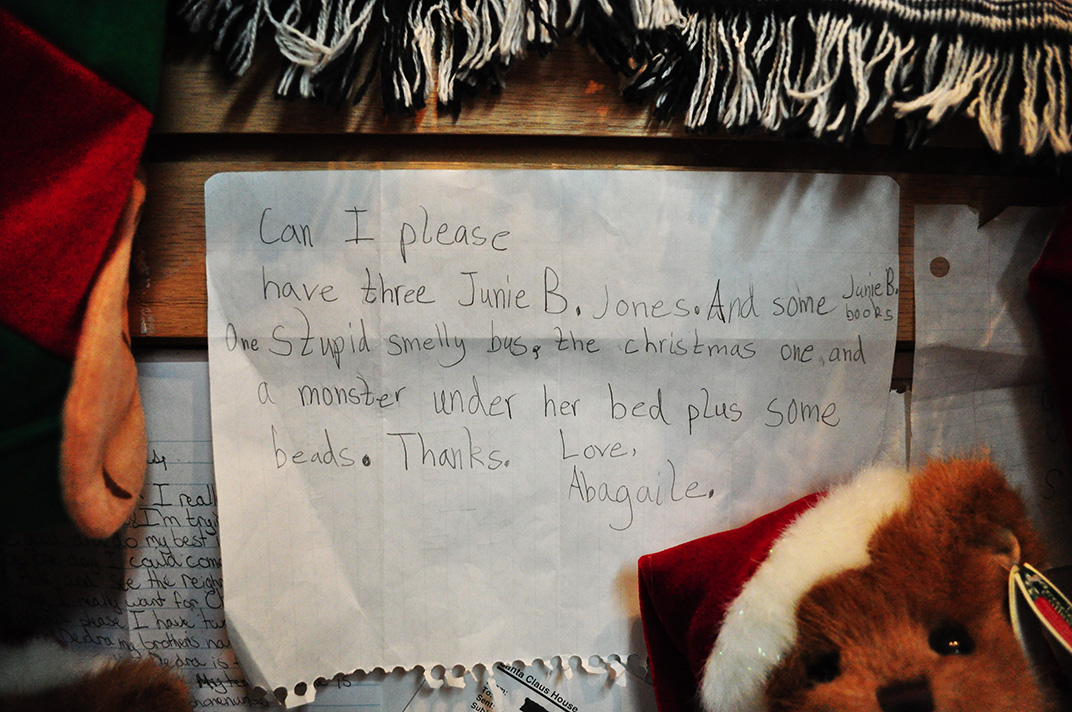 Can I please
have three Junie B. Jones. And some Junie B.
books
One Stupid smelly bus, the christmas one, and
a monster under her bed plus some
beads. Thanks. Love,
Abagaile.
I reall
I'm tryi
to my best
I could com
see the neigh
really want for C
I have tw
Dedra my brothers na
Dedra is
Santa Claus House
To:
Sent:
Sub